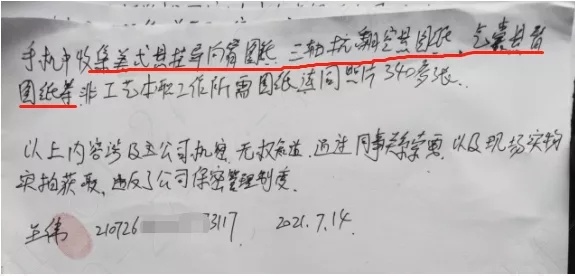 手机中收集美式其挂导向臂图纸、三轴抗翻空悬图纸、气囊其背
图纸等非工艺本职工作所需图纸连同照片340多张。
以上内容涉及公司机密,无权知道,通过同事关系索要,以及现场实物
实拍获取,违反了公司保密管理制度。
王伟 210726 3117 2021.7.14